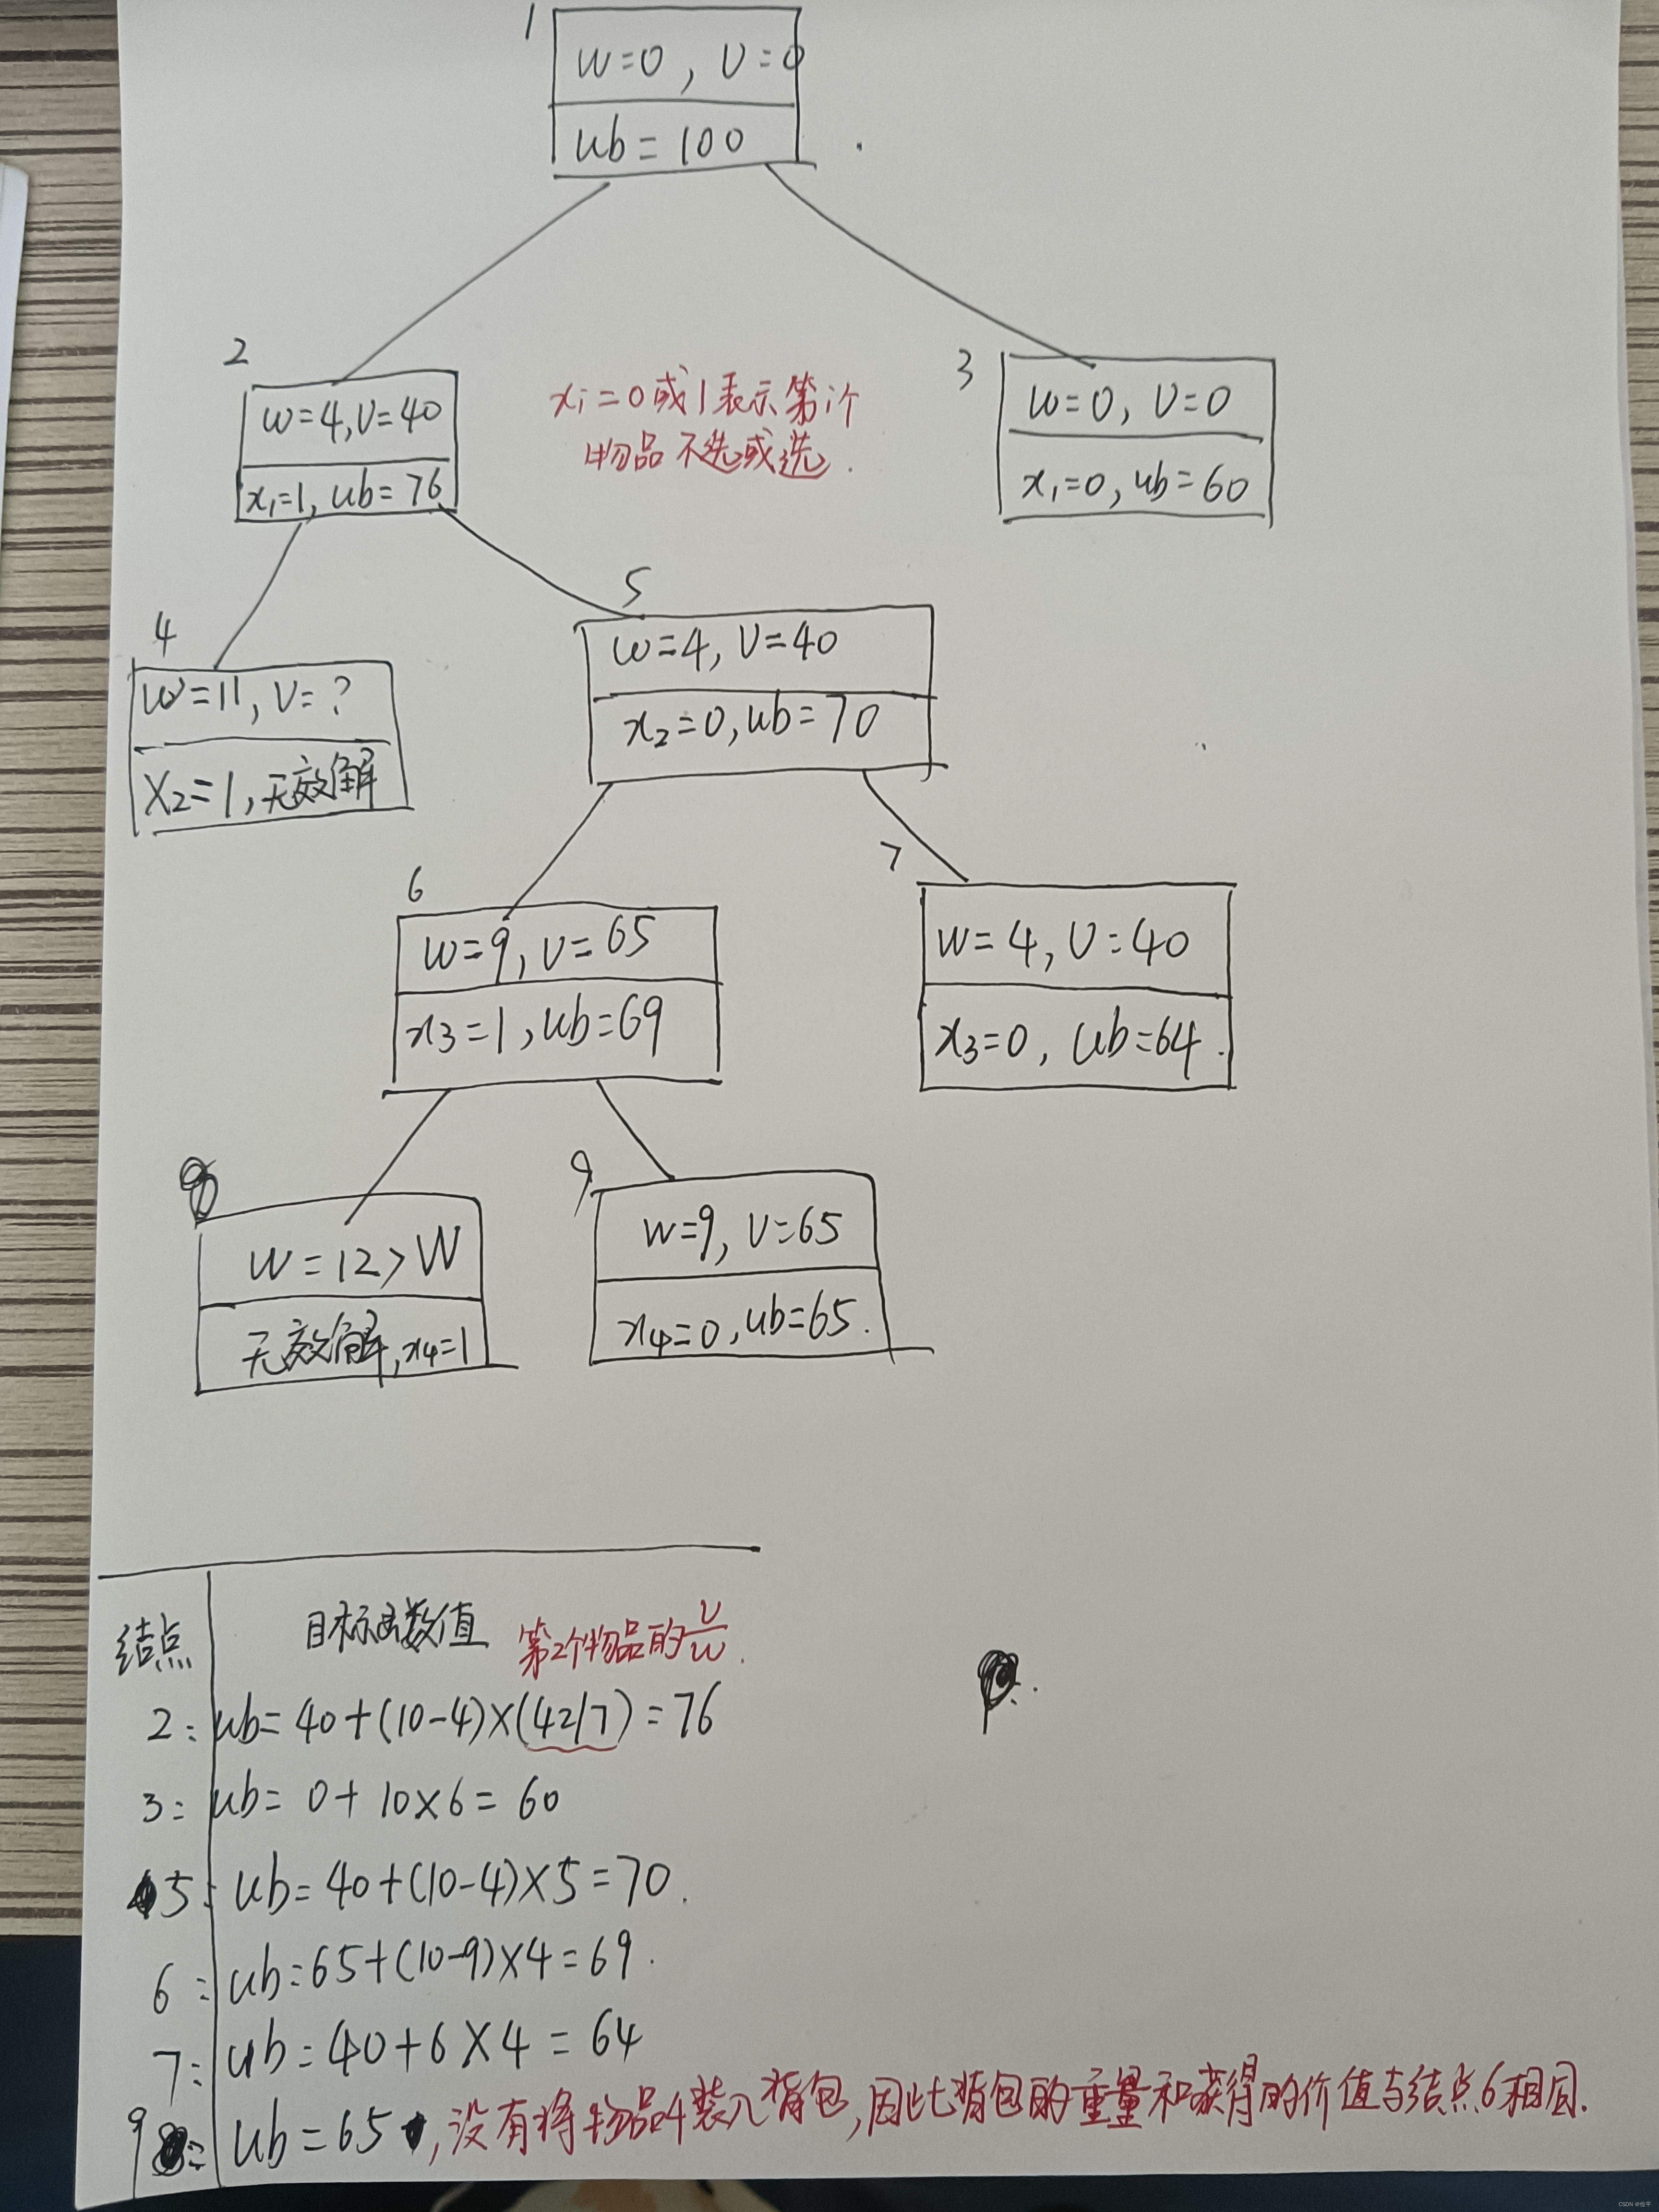 1
w=0, v=0
ub=100
2
w=4, v=40
x₁=1, ub=76
xᵢ=0或1表示第i个
物品不选或选.
3
w=0, v=0
x₁=0, ub=60
4
w=11, v=?
x₂=1,无效解
5
w=4, v=40
x₂=0, ub=70
6
w=9, v=65
x₃=1, ub=69
7
w=4, v=40
x₃=0, ub=64.
8
w=12>W
无效解, x₄=1
9
w=9, v=65
x₄=0, ub=65.
结点 目标函数值 第2个物品的v/w.
2: ub=40+(10-4)×(42/7)=76
3: ub=0+10×6=60
5: ub=40+(10-4)×5=70.
6: ub=65+(10-9)×4=69.
7: ub=40+6×4=64
9: ub=65,没有将物品4装入背包,因此背包的重量和获得的价值与结点6相同.